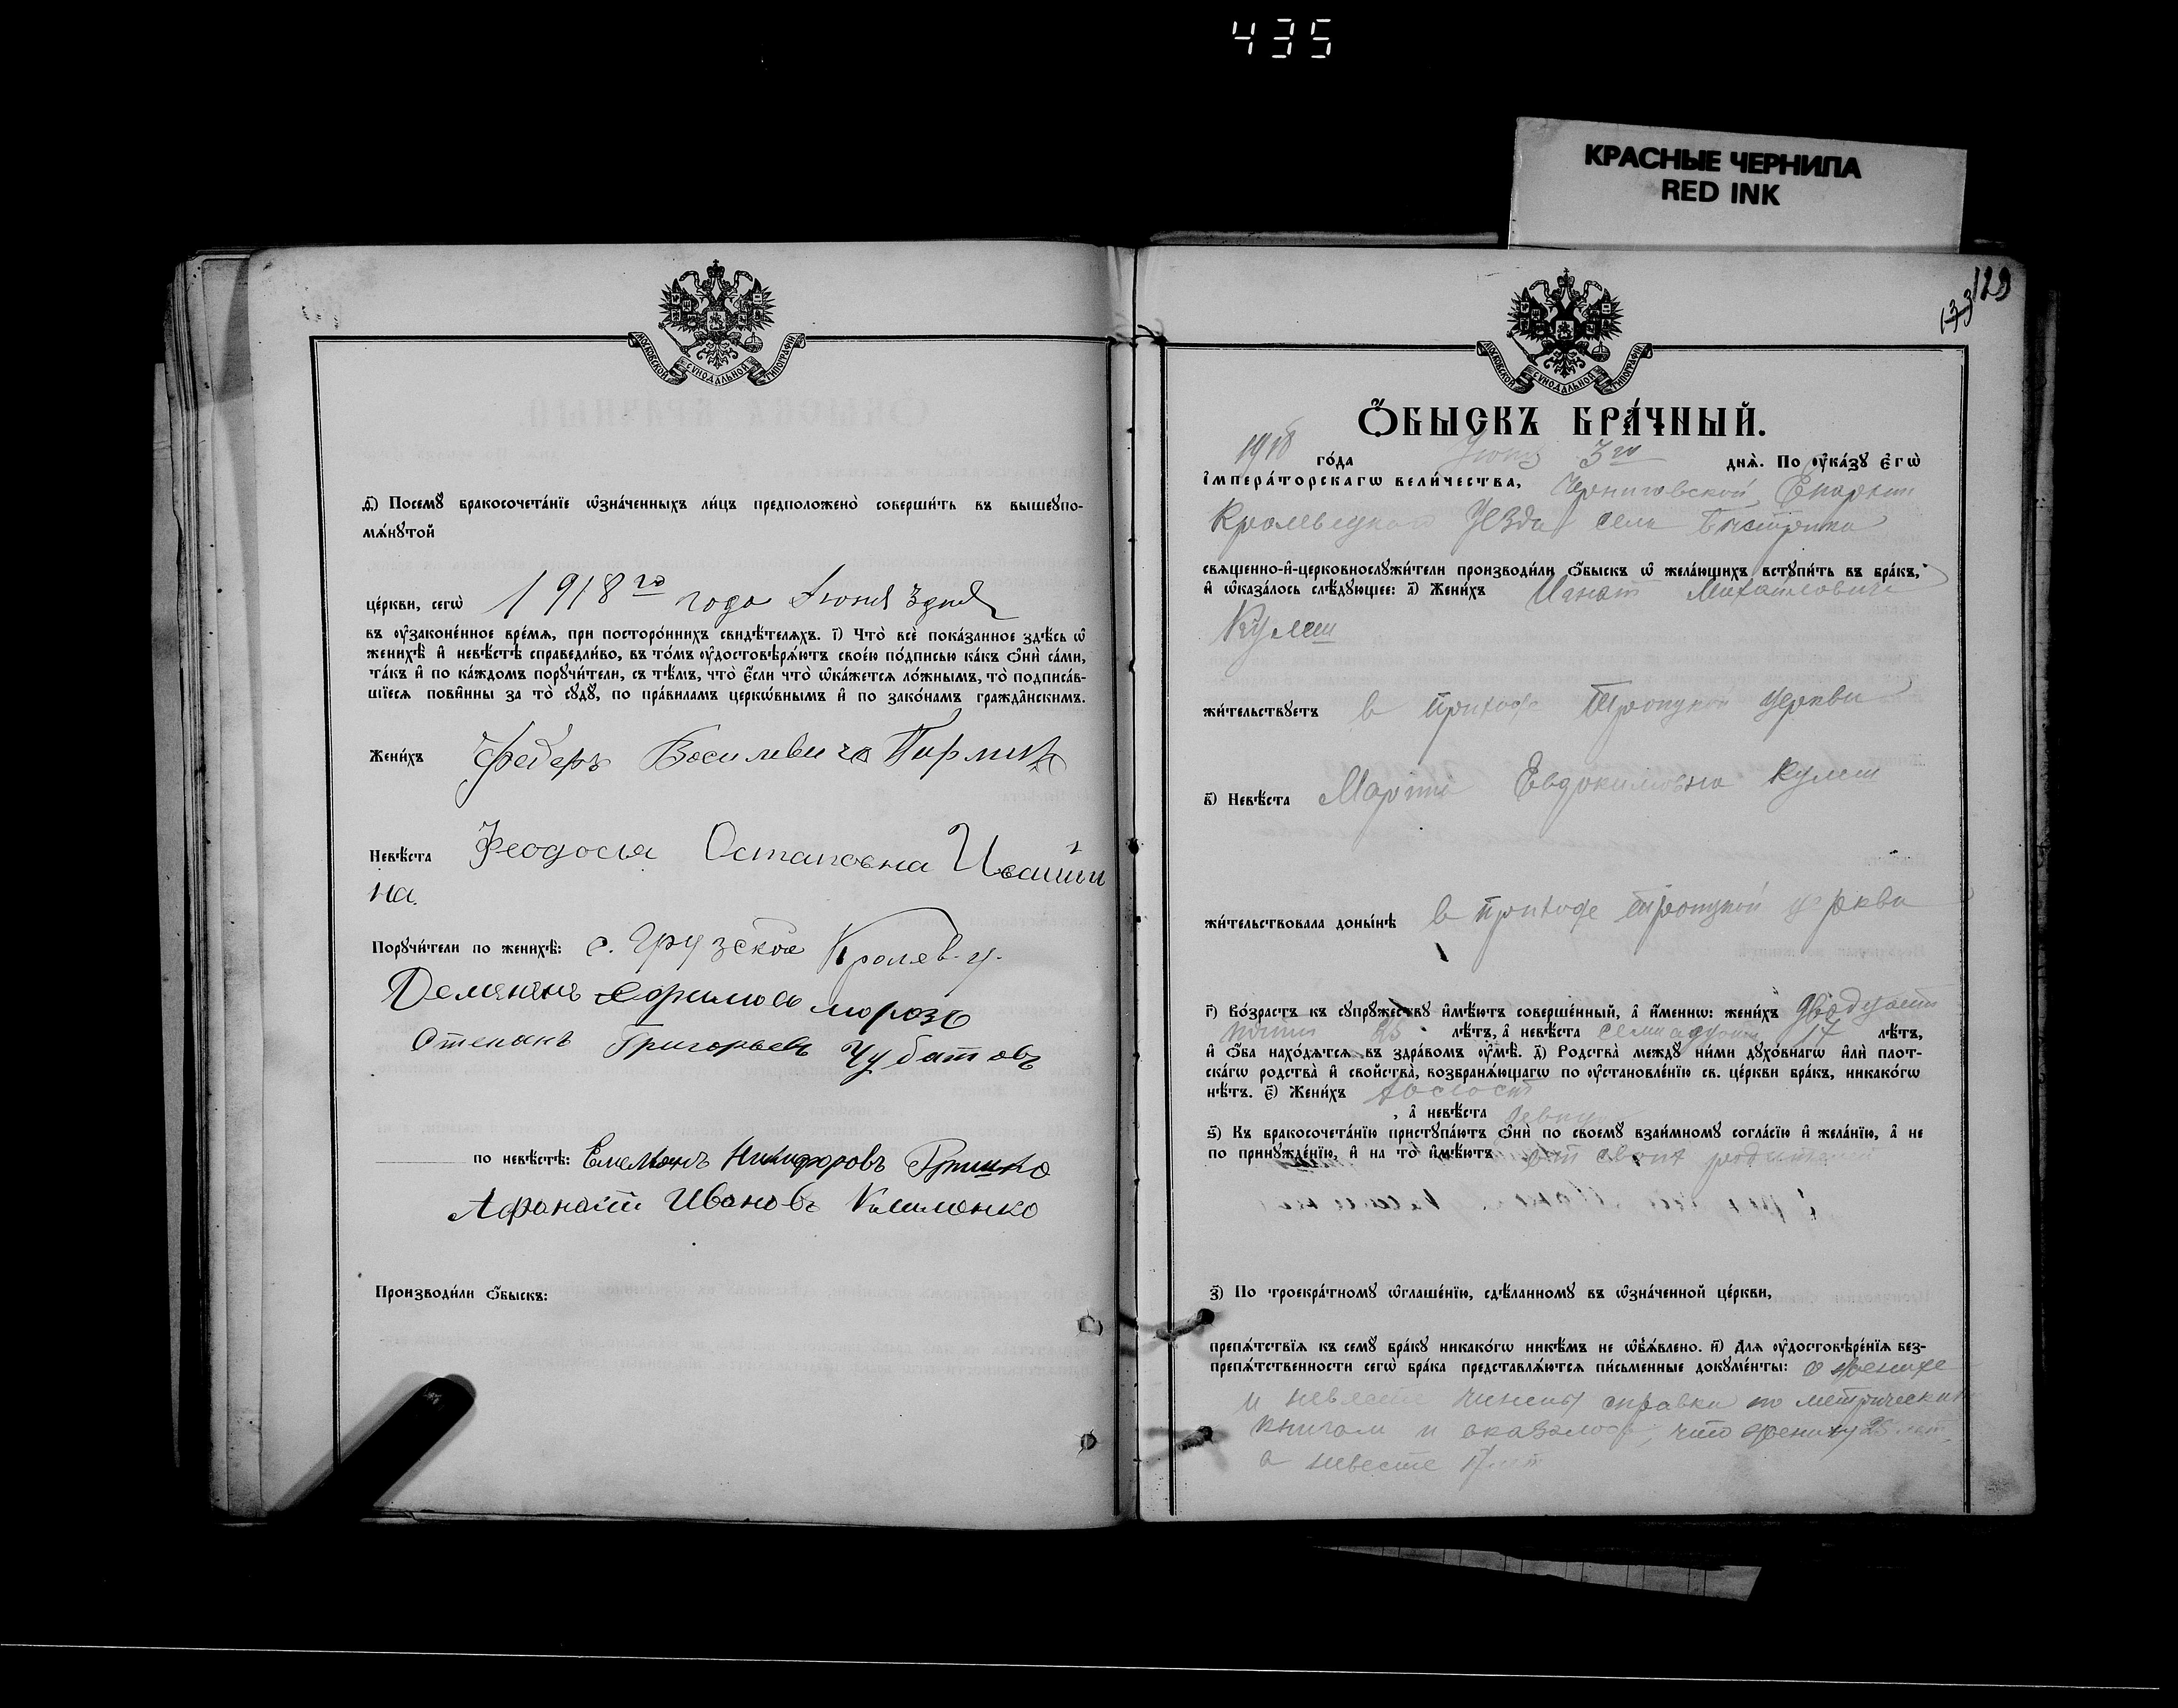 435
КРАСНЫЕ ЧЕРНИЛА
RED INK
МОСКОВСКОЙ СѴНОДАЛЬНОЙ ТИПОГРАФІИ
ѳ҃) Посемꙋ̀ бракосочета́нїе ѡ҆зна́ченныхъ ли́цъ предположено̀ соверши́ть въ вышеꙋпо-
мѧ́нꙋтой
це́ркви, сегѡ̀ 1918 го года Июня 3 дня
въ ᲂу҆зако́ненное вре́мѧ, при посторо́ннихъ свидѣ́телѧхъ. і҃) Что̀ всѐ пока́занное здѣ́сь ѡ҆
женихѣ̀ и҆ невѣ́стѣ справедли́во, въ то́мъ ᲂу҆достовѣрѧ́ютъ свое́ю по́дписью ка́къ ѻ҆нѝ са́ми,
та́къ и҆ по ка́ждомъ порꙋчи́тели, съ тѣ́мъ, что̀ є҆́сли что̀ ѡ҆ка́жетсѧ ло́жнымъ, то̀ подписа́в-
шїесѧ пови́нны за то̀ сꙋдꙋ̀, по пра́виламъ церко́внымъ и҆ по зако́намъ гражда́нскимъ.
Жени́хъ Федоръ Васильевичъ
Невѣ́ста Феодосия Остаповна Иваши
на
Порꙋчи́тели по женихѣ̀: с. Грузское Кролев. у.
Морозъ
Степанъ Григорьевъ Чубатовъ
по невѣ́стѣ: Емельянъ Никифоровъ Гришко
Афанасий Ивановъ Клименко
Производи́ли ѻ҆́быскъ:
129
133
МОСКОВСКОЙ СѴНОДАЛЬНОЙ ТИПОГРАФІИ
Ѻ҆́БЫСКЪ БРА́ЧНЫЙ.
1918 го́да Июня 3 го днѧ̀. По ᲂу҆ка́зꙋ є҆гѡ̀
і҆мпера́торскагѡ вели́чества, Черниговской Епархии
Кролевецкого Уезда села Быстрика
свѧще́нно-и҆-церковнослꙋжи́тели производи́ли ѻ҆́быскъ ѡ҆ жела́ющихъ вступи́ть въ бра́къ,
и҆ ѡ҆каза́лось слѣ́дꙋющее: а҃) Жени́хъ Игнат Михайлович
Кулеш
жи́тельствꙋетъ в приходе Троицкой церкви
в҃) Невѣ́ста Мария Евдокимовна Кулеш
жи́тельствовала доны́нѣ в приходе троицкой церкви
г҃) Во́зрастъ къ сꙋпрꙋ́жествꙋ и҆мѣ́ютъ соверше́нный, а҆ и҆́менно: жени́хъ двадцати
пяти 25 лѣ́тъ, а҆ невѣ́ста семнадцати 17 лѣ́тъ,
и҆ ѻ҆́ба нахо́дѧтсѧ въ здра́вомъ ᲂу҆мѣ̀. д҃) Родства̀ междꙋ ни́ми дꙋхо́внагѡ и҆лѝ плот-
ска́гѡ родства̀ и҆ свойства̀, возбранѧ́ющагѡ по ᲂу҆становле́нїю св. це́ркви бра́къ, никако́гѡ
нѣ́тъ. є҃) Жени́хъ холост
, а҆ невѣ́ста девица
ѕ҃) Къ бракосочета́нїю пристꙋпа́ютъ ѻ҆нѝ по своемꙋ̀ взаи́мномꙋ согла́сїю и҆ жела́нїю, а҆ не
по принꙋжде́нїю, и҆ на то̀ и҆мѣ́ютъ от своих родителей
з҃) По троекра́тномꙋ ѡ҆глаше́нїю, сдѣ́ланномꙋ въ ѡ҆зна́ченной це́ркви,
препѧ́тствїѧ къ семꙋ̀ бра́кꙋ никако́гѡ никѣ́мъ не ѡ҆б̾ѧ́влено. и҃) Для ᲂу҆достовѣре́нїѧ без-
препѧ́тственности сегѡ̀ бра́ка представлѧ́ютсѧ пи́сьменные докꙋме́нты: о женихе
и невесте чинены справки по метрическим
книгам и оказалось, что жениху 25 лет,
а невесте 17 лет